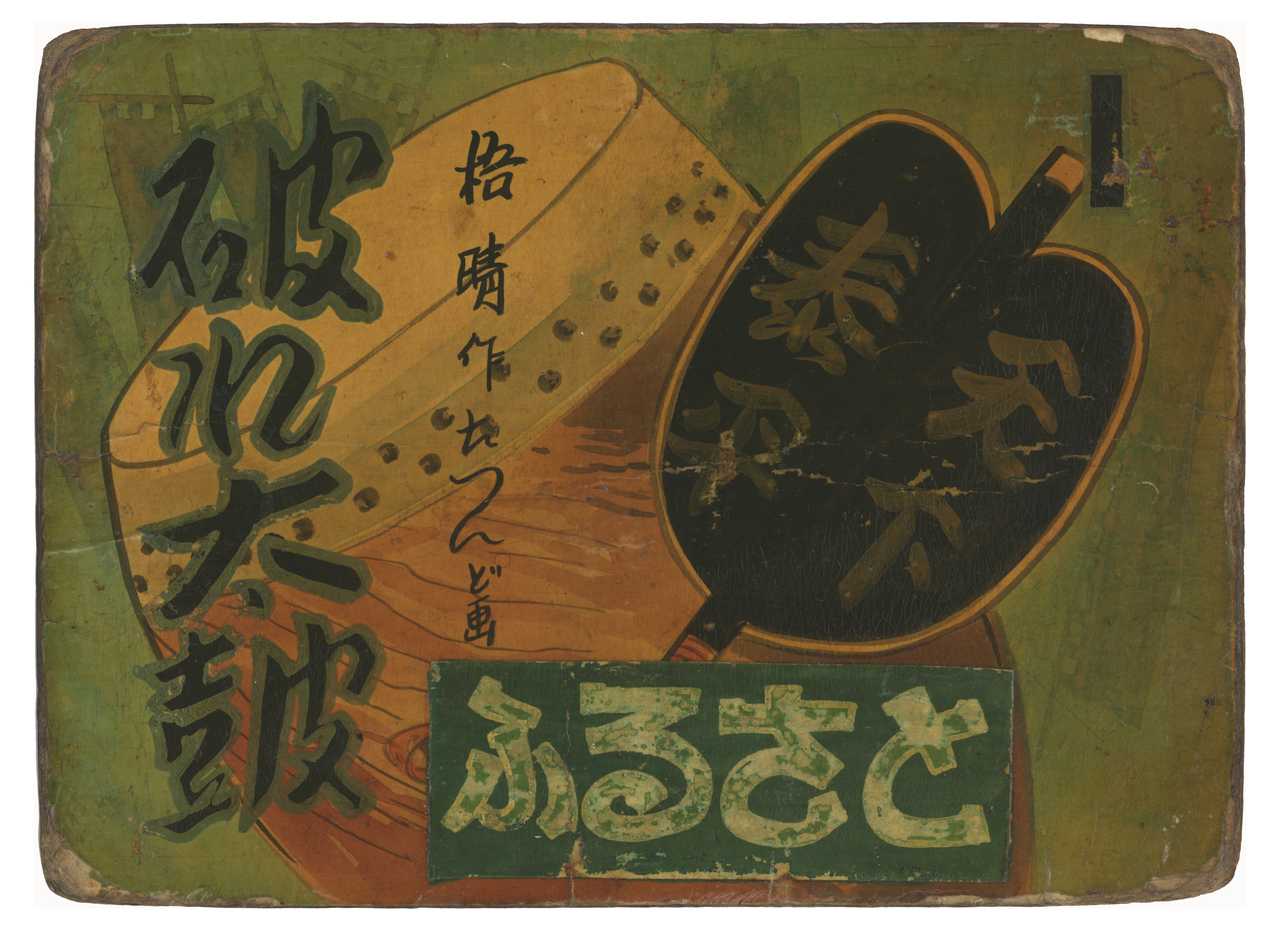 天下
泰平
梧晴作 たつんど画
破れ太皷
ふるさと